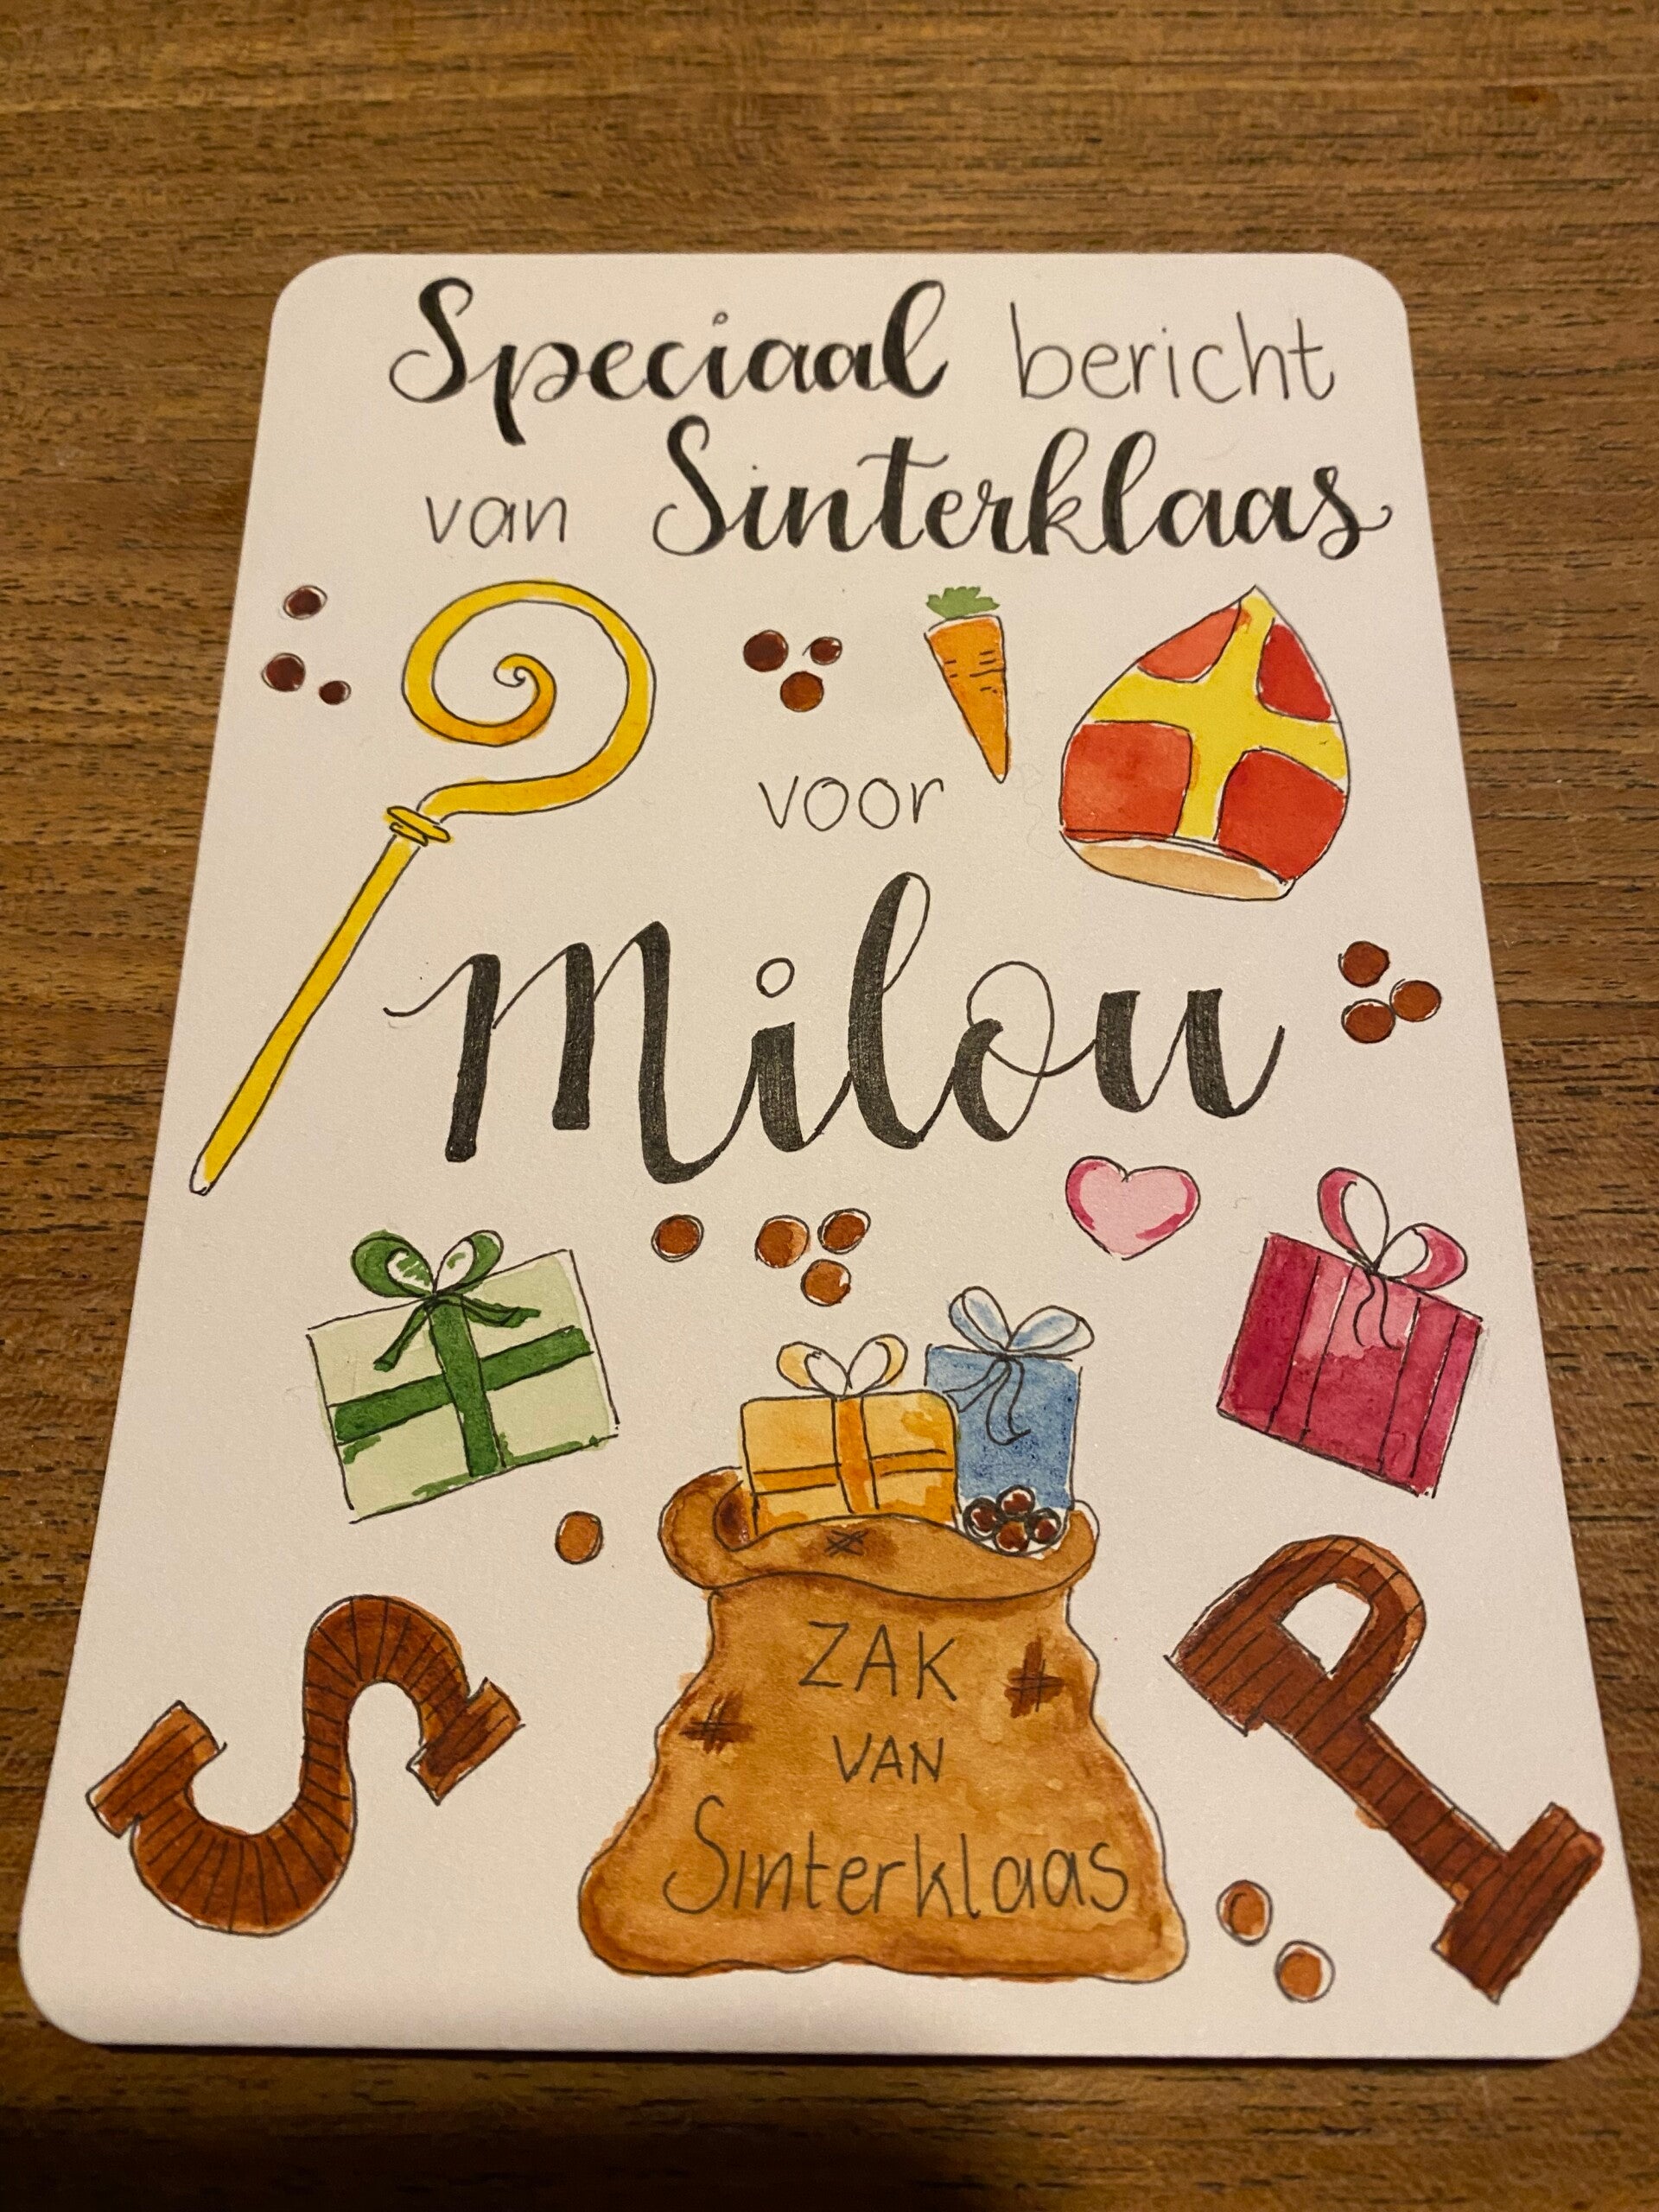 Speciaal bericht
van Sinterklaas
voor
Milou
ZAK
VAN
Sinterklaas
S
P